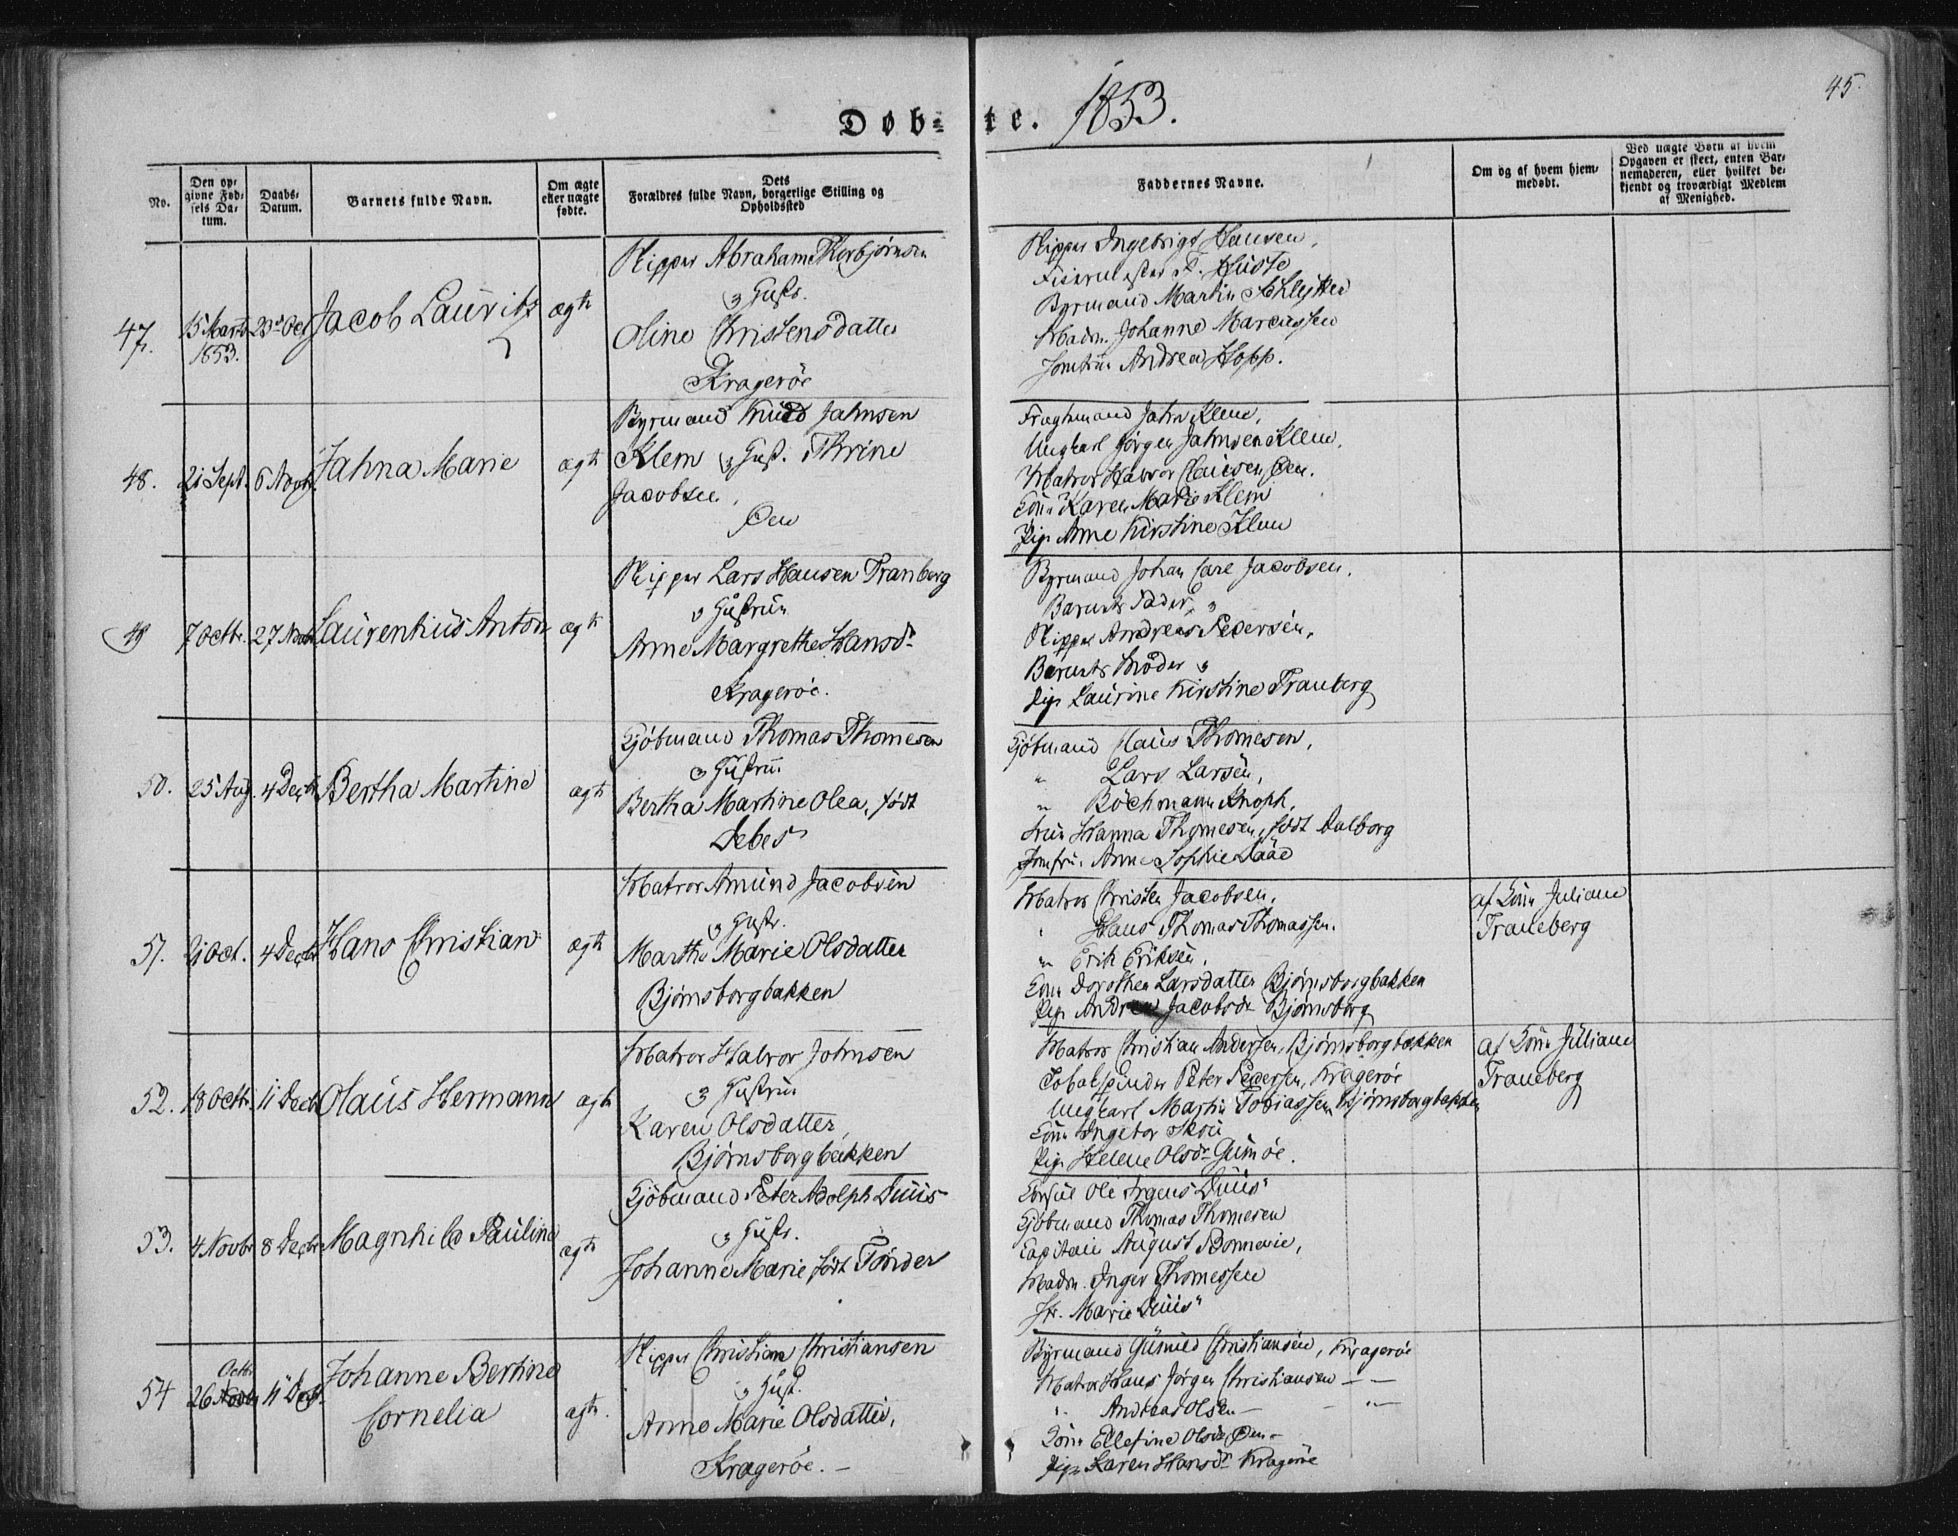 45.
Døb- te. 1853.
No.
Den op-
givne Fød-
sels Da-
tum.
Daabs-
Datum.
Barnets fulde Navn.
Om ægte
eller uægte
fødte.
Dets
Forældres fulde Navn, borgerlige Stilling og
Opholdssted
Faddernes Navne.
Om og af hvem hjem-
medøbt.
Ved uægte Børn af hvem
Opgaven er skeet, enten Bar-
nemoderen, eller hvilket be-
kjendt og troværdigt Medlem
af Menighed.
47.
15 Marts
1853.
23d Oct
Jacob Lauritz
ægte
Skipper Abraham Thorbjørnsen
og Hustr.
Oline Christensdatter
Kragerøe
Skipper Ingebrigt Hansen,
Byrmand Martin Schlytter
Madm. Johanne Marcussen
Jomfrue Andrea Hopp.
48.
21 Sept.
6 Novbr.
Jahna Marie
ægte
Byrmand Knud Jahnsen
Klem og Hust. Thrine
Jacobsen,
Øen
Fragtmand Jahn Klem,
Ungkarl Jørgen Jahnsen Klem,
Matros Halvor Clausen, Øen.
Kone Karen Marie Klem
Pige Anne Kirstine Klem
49
7 Octbr.
27 Novbr
Laurentius Anton
ægte
Skipper Lars Hansen Tranberg
og Hustrue
Anne Margrethe Hansdr
Kragerøe.
Byrmand Johan Carl Jacobsen,
Barnets Fader,
Skipper Andreas Pedersen,
Barnets Moder og
Pige Laurine Kirstine Tranberg
50.
25 Aug.
4 Decbr
Bertha Martine
ægte
Kjøbmand Thomas Thomesen
og Hustrue
Bertha Martine Olea, født
Debes
Kjøbmand Claus Thomesen,
" Lars Larsen,
" Bøchmann Knoph,
Frue Hanna Thomesen, født Dalborg
Jomfrue Anne Sophie Paae
51.
21 Oct.
4 Decbr
Hans Christian
ægte
Matros Amund Jacobsen
og Hustr.
Marthe Marie Olsdatter
Bjørnsborgbakken
Matros Christen Jacobsen,
" Hans Thomas Thomassen.
" Erik Eriksen,
Kone Dorothea Larsdatter Bjørnsborgbakken
Pige Andrea Jacobsdr Bjørnsborg
af Kone Juliane
Traneberg
52.
18 Octbr.
11 Decbr
Olaus Hermann
ægte
Matros Halvor Johnsen
og Hustrue
Karen Olsdatter,
Bjørnsborgbakken
Matros Christian Andersen, Bjørnsborgbakken
Tobakspinder Peter Pedersen, Kragerøe
Ungkarl Martin Tobiassen Bjørnsborgbakken
Kone Ingebor Skou
Pige Helene Olsdr Gumøe.
af Kone Juliane
Traneberg
53.
4 Novbr
8 Decbr
Magnhild Pauline
ægte
Kjøbmand Peter Adolph Duus
og Hustr.
Johanne Marie født Tønder
Consul Ole Irgens Duus
Kjøbmand Thomas Thomesen
Capitain August Bonnevie,
Madm. Inger Thomessen
Jfr. Marie Duus
54
Octbr.
26 Novbr
11 Decbr.
Johanne Bertine
Cornelia
ægte.
Skipper Christian Christiansen
og Hust.
Anne Marie Olsdatter,
Kragerøe. —
Byrmand Christiansen, Kragerøe
Matros Hans Jørgen Christiansen — —
" Andreas Olsen — — " —
Kone Ellefine Olsdr, Øen —
Pige Karen Hansdr Kragerøe